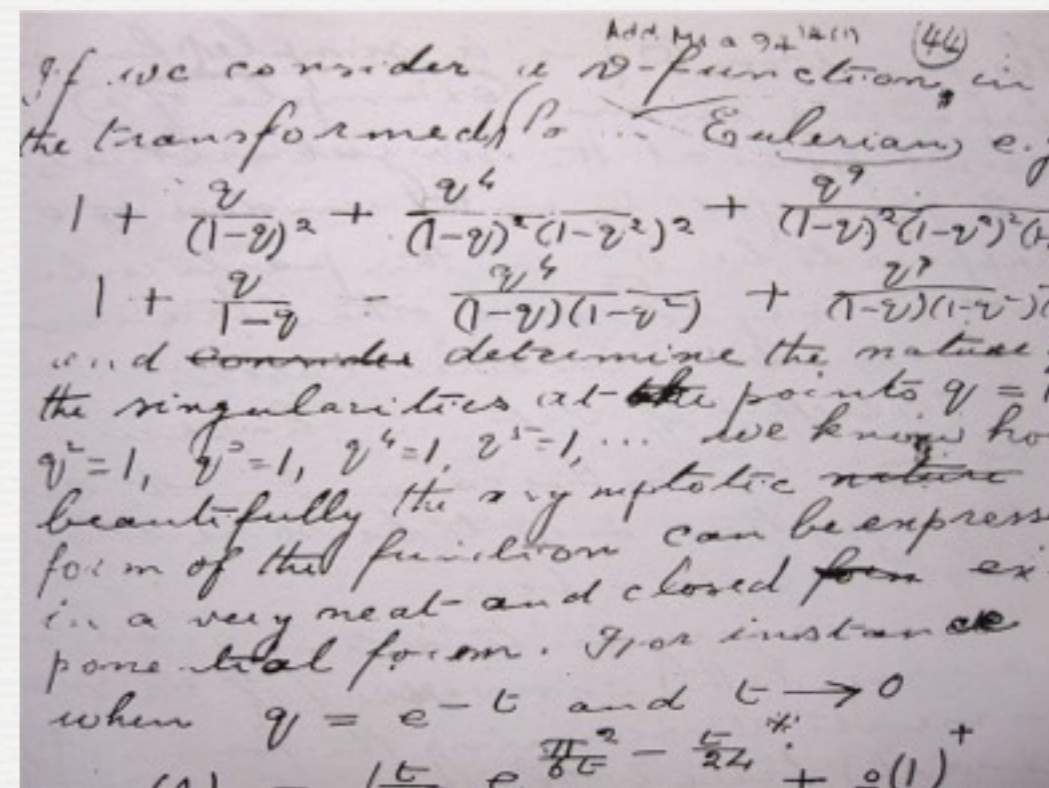 Add. Ms a 94
(44)
If we consider a ϑ-function, in
the transformed Eulerian, e.g
1 + q/(1-q)² + q⁴/(1-q)²(1-q²)² + q⁹/(1-q)²(1-q²)²(1-
1 + q/1-q - q⁴/(1-q)(1-q²) + q⁹/(1-q)(1-q²)(
and determine the nature
the singularities at the points q = 1
q² = 1, q³ = 1, q⁴ = 1, q⁵ = 1, ... we know ho
beautifully the asymptotic nature
form of the function can be expresse
in a very neat and closed form ex
ponential form. For instance
when q = e^-t and t → 0
e^(π²/6t - t/24) + o(1)